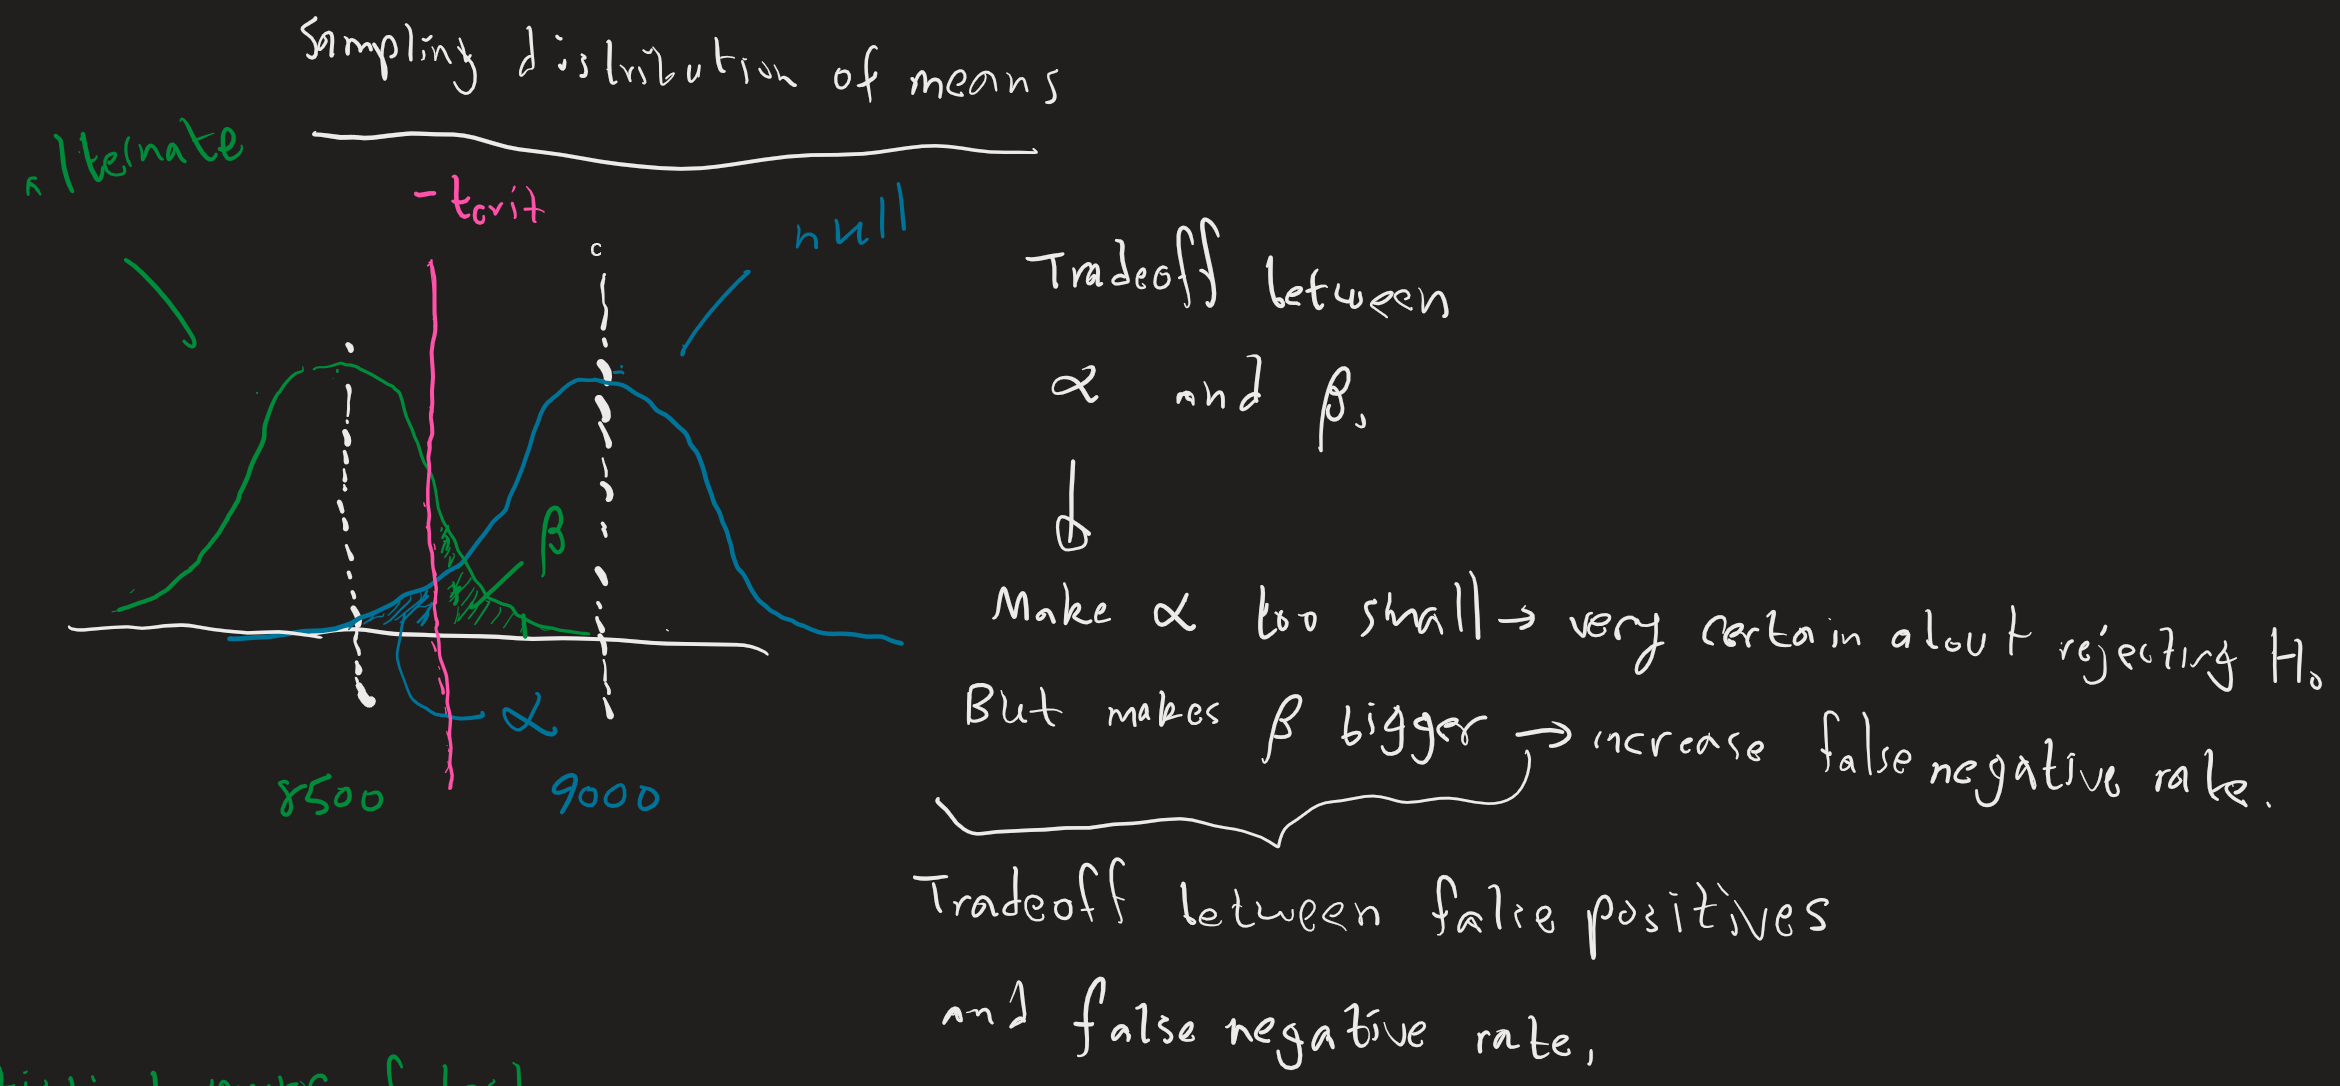 Sampling distribution of means
alternate
-tcrit
null
c
β
α
8500
9000
Tradeoff between
α and β.
Make α too small → very certain about rejecting H₀
But makes β bigger → increase false negative rate.
Tradeoff between false positives
and false negative rate.